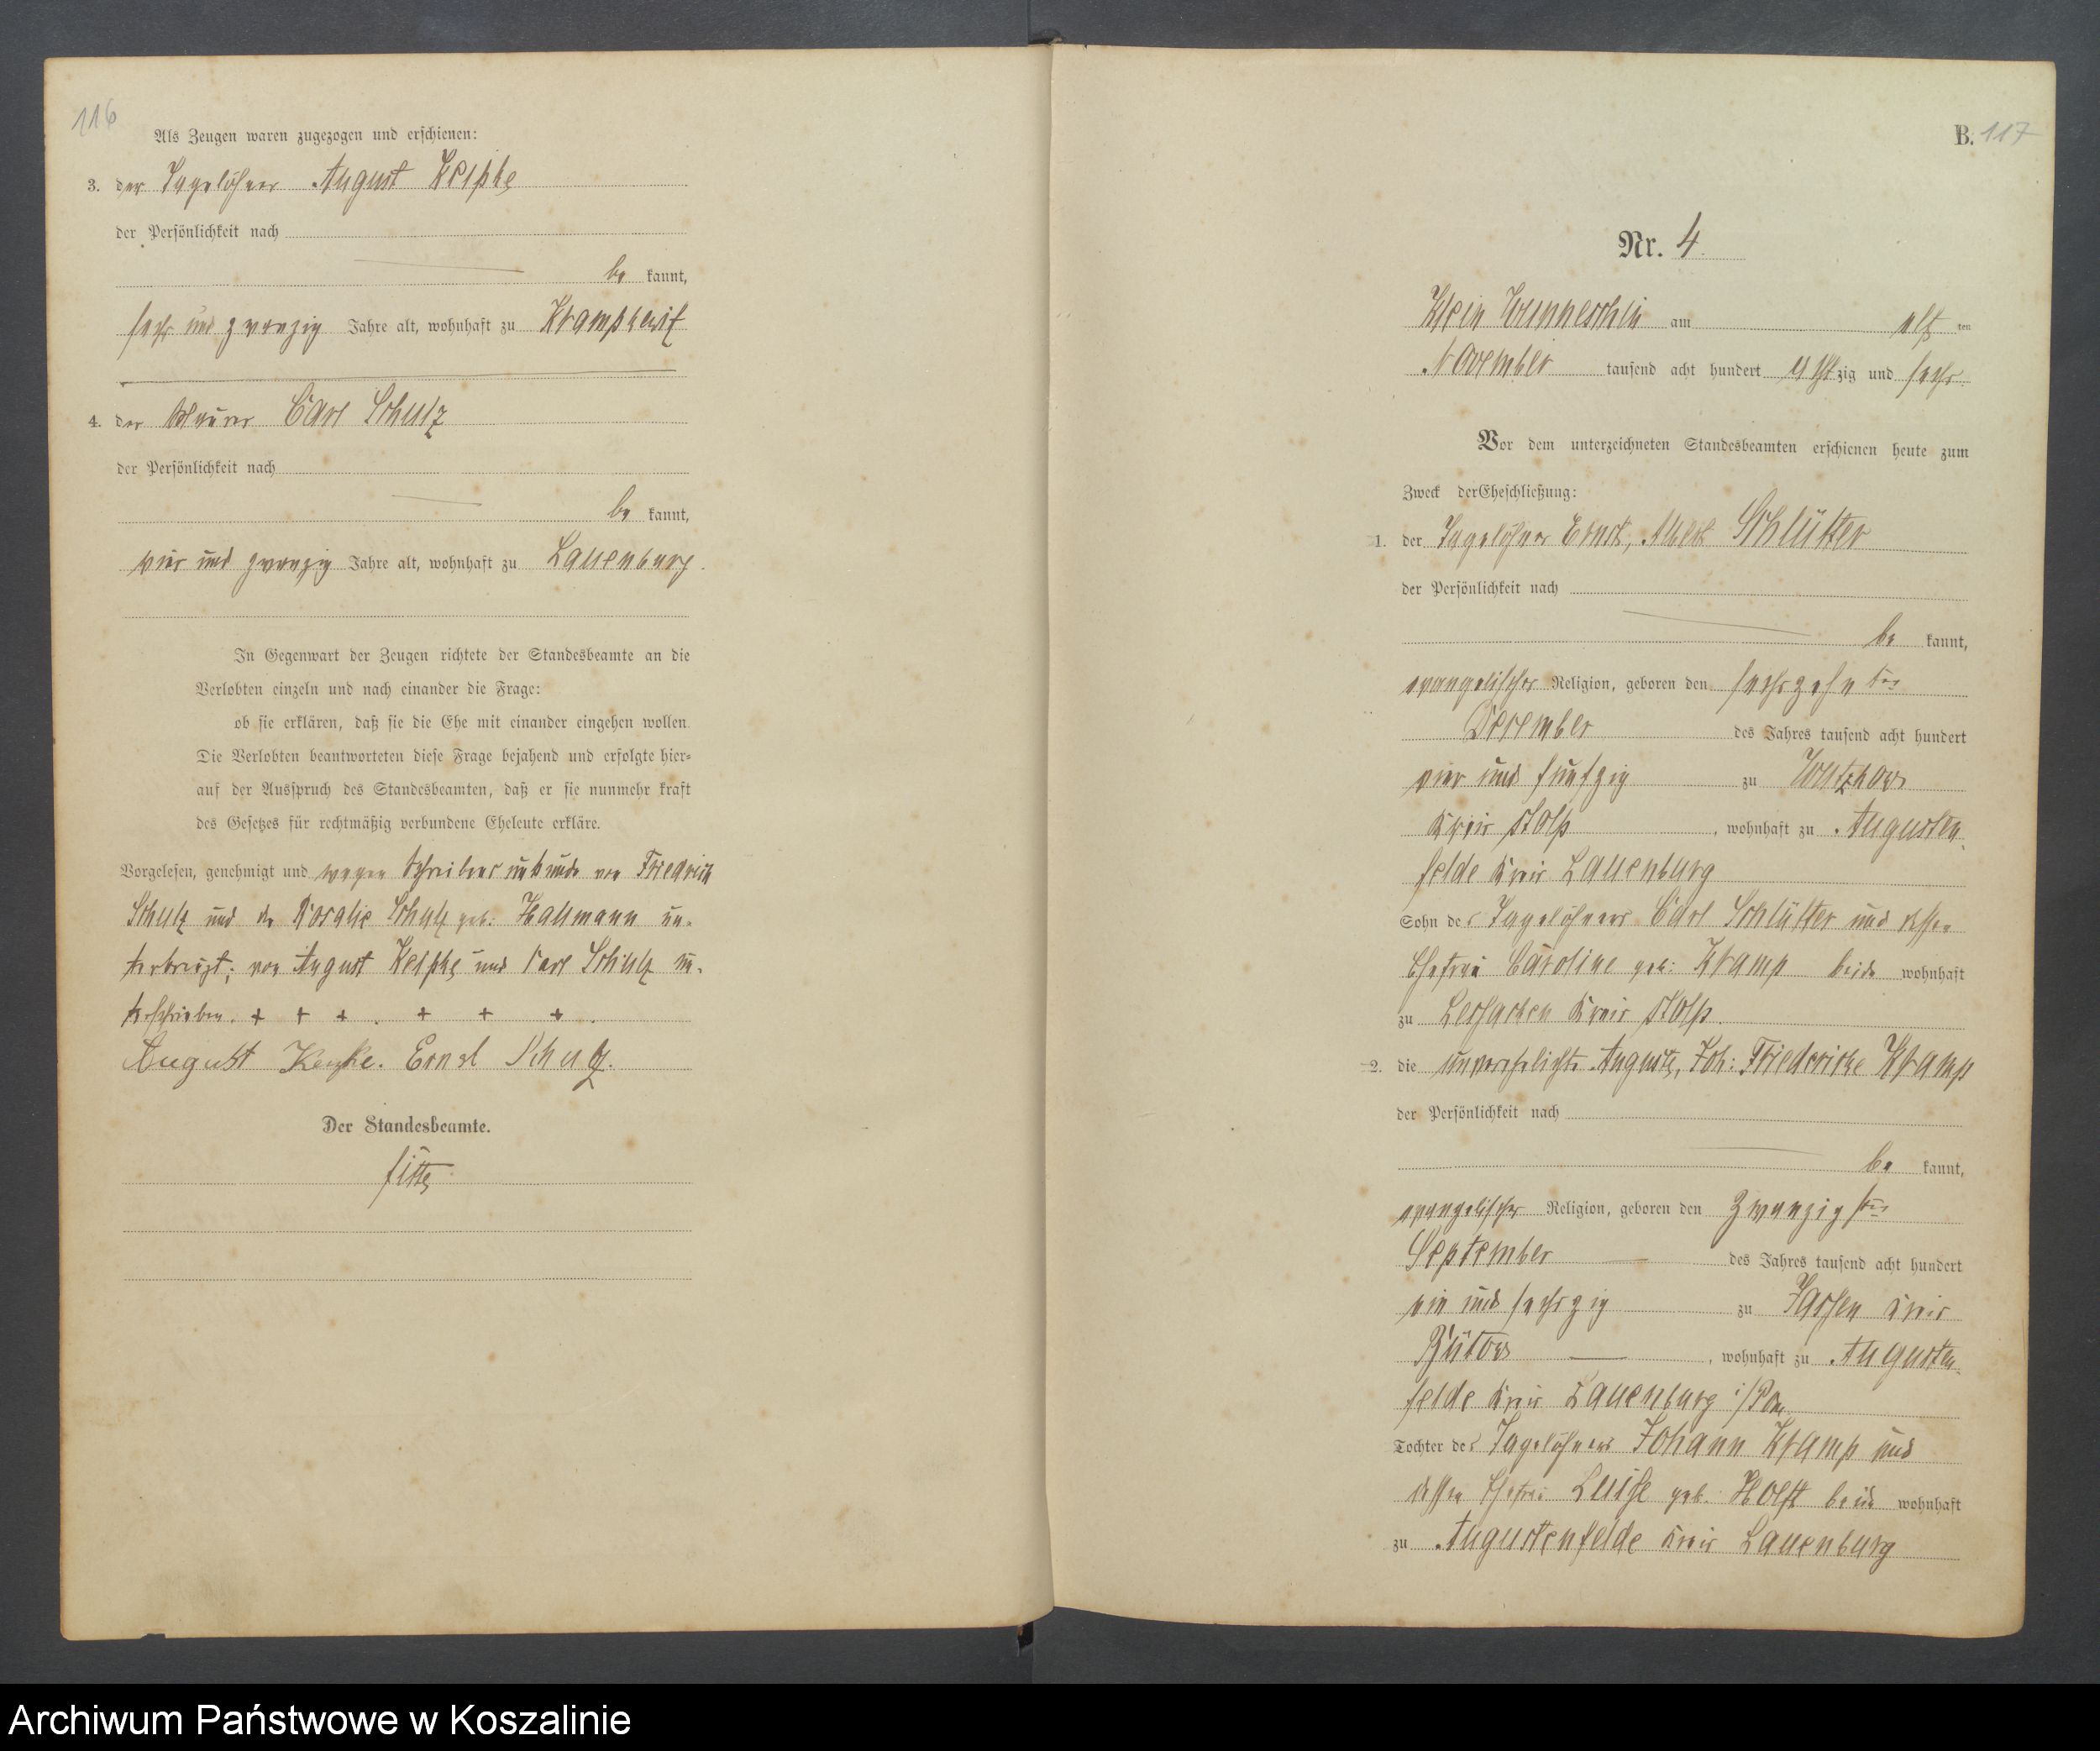 116
Als Zeugen waren zugezogen und erschienen:
3. der Tagelöhner August Keipke
der Persönlichkeit nach
be kannt,
sechs und zwanzig Jahre alt, wohnhaft zu Krampkewitz
4. der Maurer Carl Schulz
der Persönlichkeit nach
be kannt,
vier und zwanzig Jahre alt, wohnhaft zu Lauenburg.
In Gegenwart der Zeugen richtete der Standesbeamte an die
Verlobten einzeln und nach einander die Frage:
ob sie erklären, daß sie die Ehe mit einander eingehen wollen.
Die Verlobten beantworteten diese Frage bejahend und erfolgte hier-
auf der Ausspruch des Standesbeamten, daß er sie nunmehr kraft
des Gesetzes für rechtmäßig verbundene Eheleute erkläre.
Vorgelesen, genehmigt und wegen Schreibens unkunde von Friedrich
Schulz und der Rosalie Schulz geb: Hallmann un-
terkreuzt; von August Keipke und Carl Schulz un-
terschrieben. + + + . + + + .
August Keipke. Ernst Schulz.
Der Standesbeamte.
B. 117
Nr. 4.
Klein Wunneschin am elf ten
November tausend acht hundert acht zig und sechs.
Vor dem unterzeichneten Standesbeamten erschienen heute zum
Zweck der Eheschließung:
1. der Tagelöhner Ernst, Albert Schlütter
der Persönlichkeit nach
be kannt,
evangelischer Religion, geboren den sechszehn ten
December des Jahres tausend acht hundert
vier und funfzig zu Wutzkow
Kreis Stolp, wohnhaft zu Augusten-
felde Kreis Lauenburg
Sohn des Tagelöhners Carl Schlütter und dessen
Ehefrau Caroline geb: Kramp beide wohnhaft
zu Kreis Stolp.
2. die unverehelichte Auguste, Joh: Friedericke Kramp
der Persönlichkeit nach
be kannt,
evangelischer Religion, geboren den zwanzig sten
September des Jahres tausend acht hundert
ein und sechszig zu Jassen Kreis
Bütow, wohnhaft zu Augusten-
felde Kreis Lauenburg i/Pom
Tochter des Tagelöhners Johann Kramp und
dessen Ehefrau Luise geb. Holst beide wohnhaft
zu Augustenfelde Kreis Lauenburg
Archiwum Państwowe w Koszalinie